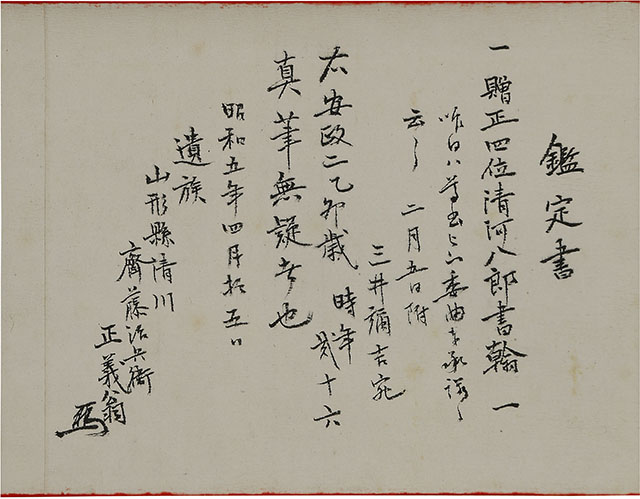 鑑定書
一贈正四位清河八郎書翰一
昨日ハ尊書ニ而委曲奉承諾候
云々 二月五日附
三井彌吉宛
右安政二乙卯歳 時年弐十六
真筆無疑者也
昭和五年四月拾五日
遺族
山形縣清川
齋藤治兵衛
正義翁